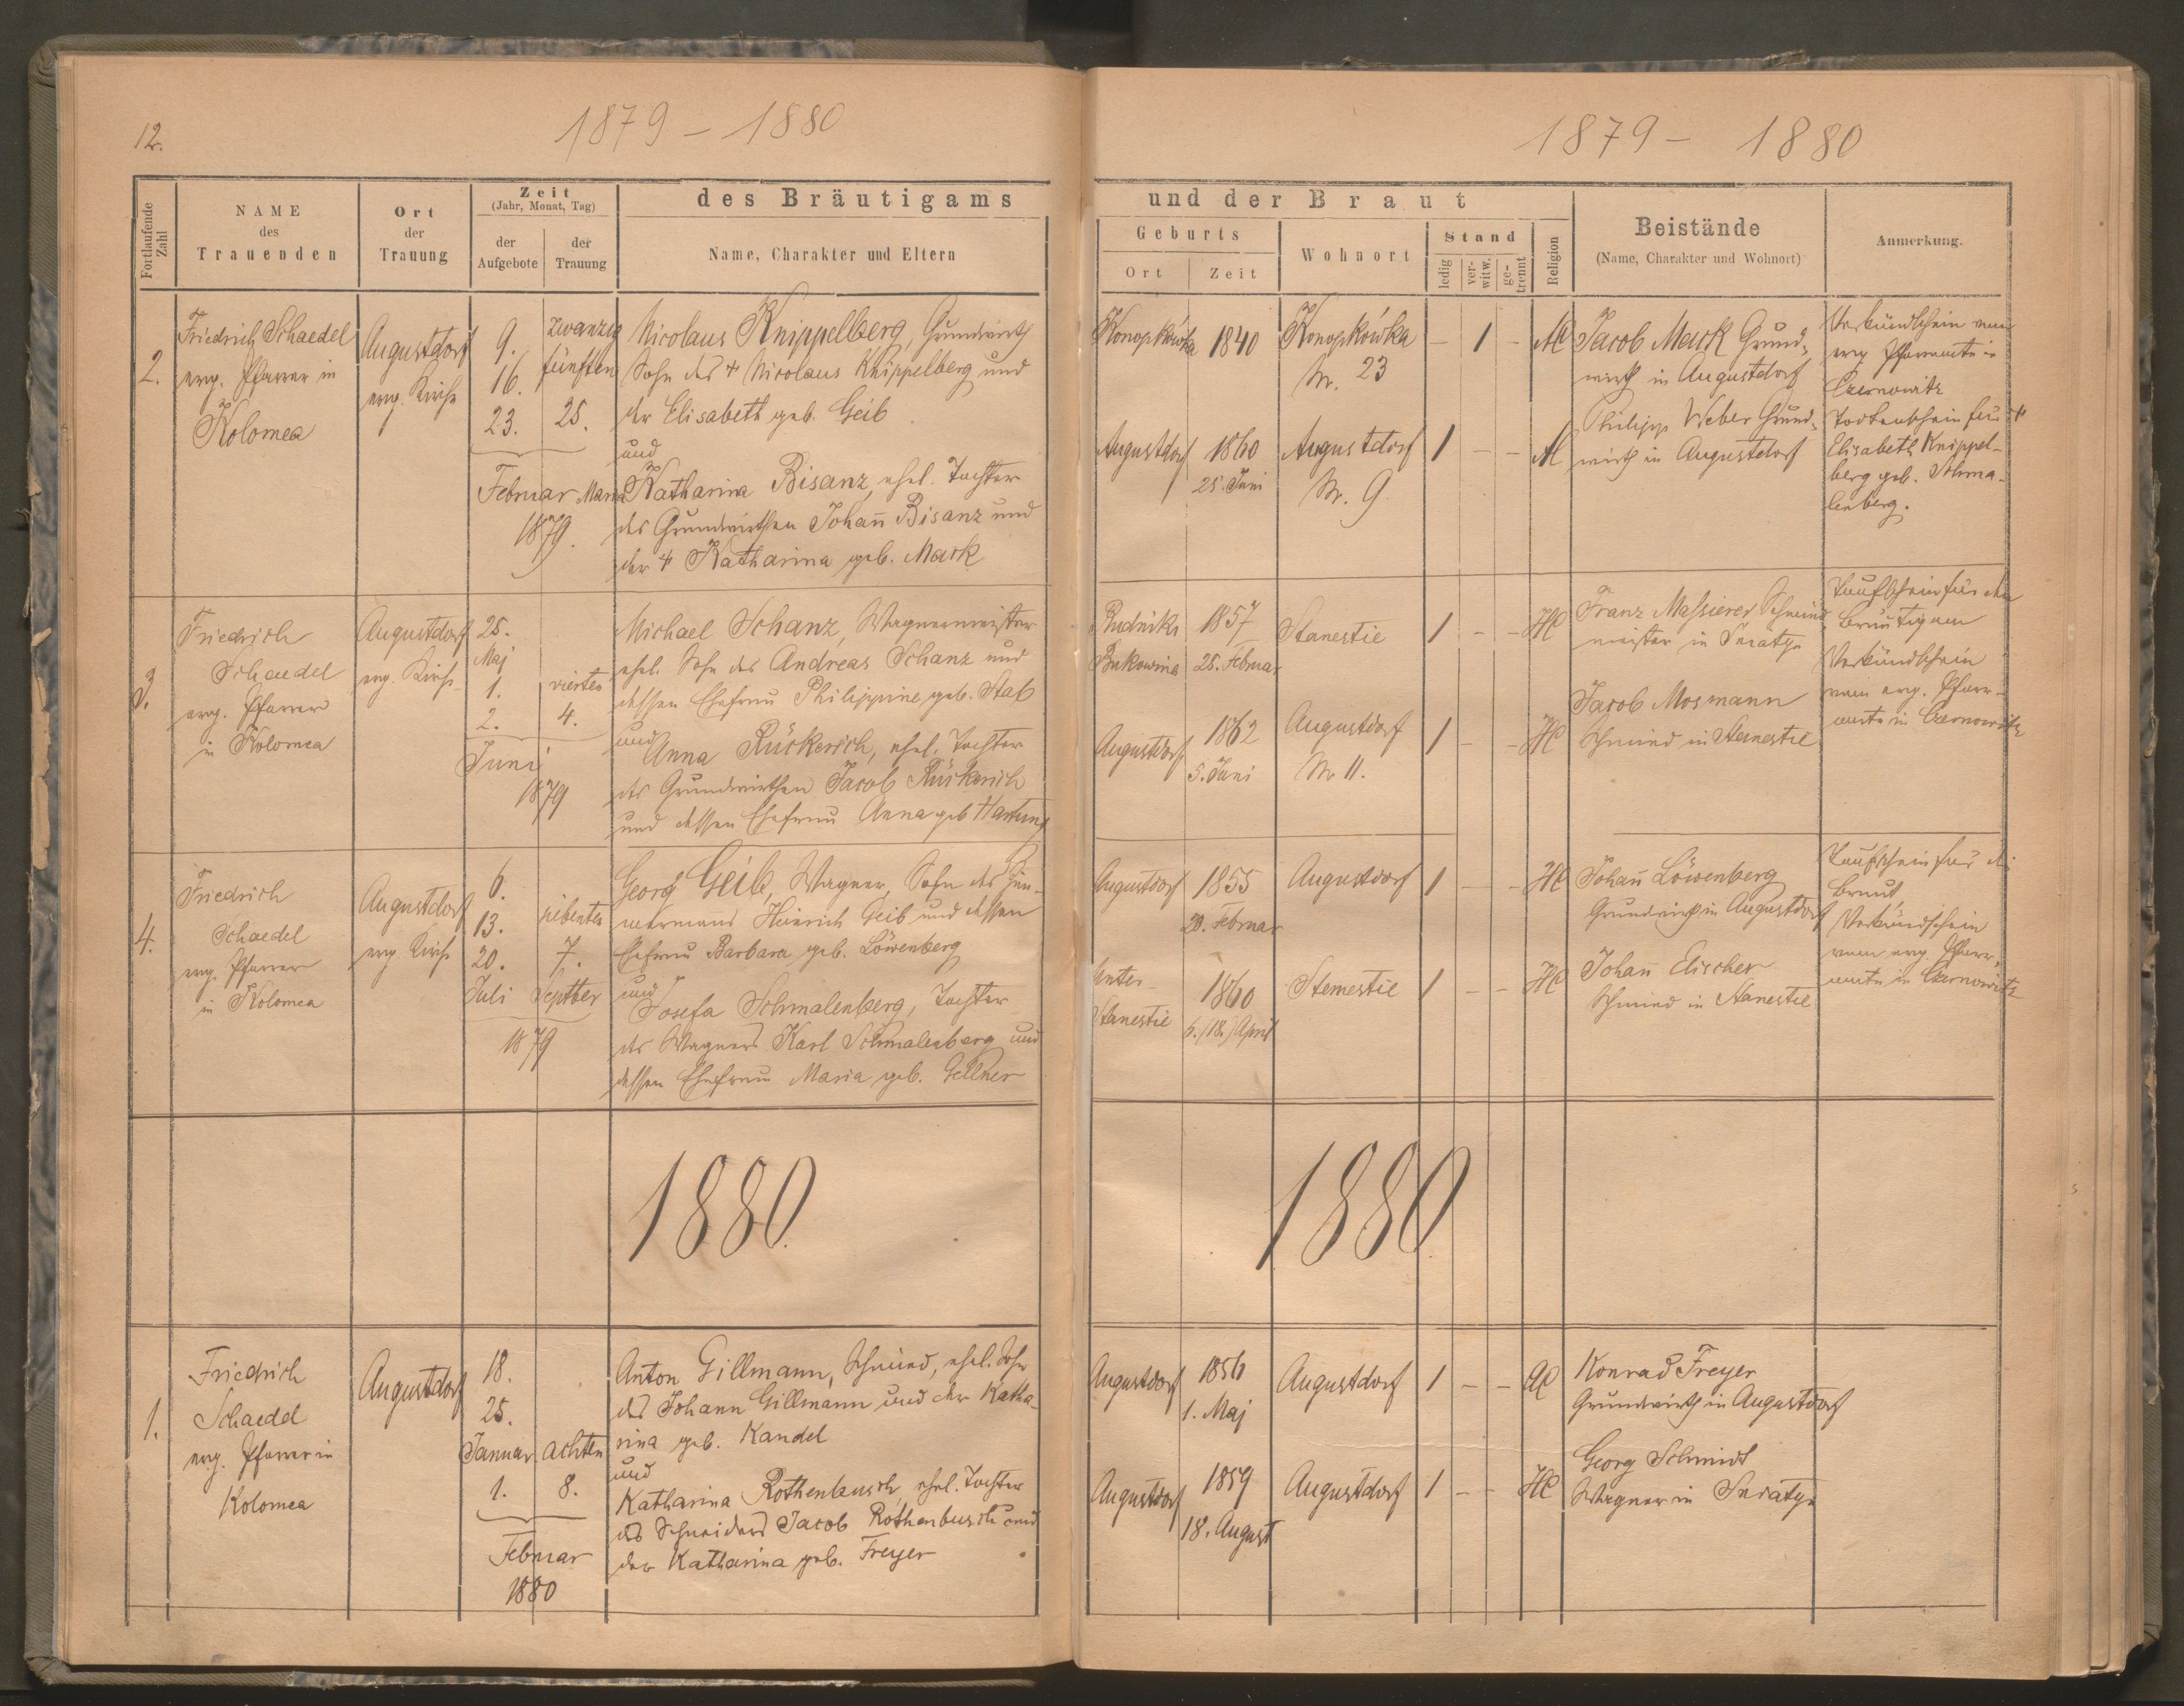 12.
1879 - 1880
Fortlaufende Zahl
NAME
des
Trauenden
Ort
der
Trauung
Zeit
(Jahr, Monat, Tag)
der
Aufgebote
der
Trauung
des Bräutigams
Name, Charakter und Eltern
2.
Friedrich Schaedel
evg. Pfarrer in
Kolomea
Augustdorf
evg. Kirche
9.
16.
23.
zwanzig
fünften
25.
Februar
1879.
Nicolaus Knippelberg, Grundwirth
Sohn des † Nicolaus Knippelberg und
der Elisabeth geb. Geib
und
Maria Katharina Bisanz, ehel. Tochter
des Grundwirthen Johañ Bisanz und
der † Katharina geb. Mark
3.
Friedrich
Schaedel
evg. Pfarrer
in Kolomea
Augustdorf
evg. Kirche
25.
Maj
1.
2.
vierten
4.
Juni
1879
Michael Schanz, Wagnermeister
ehel. Sohn des Andreas Schanz und
dessen Ehefrau Philippine geb. Stab
und
Anna Rückerich, ehel. Tochter
des Grundwirthen Jacob Rückerich
und dessen Ehefrau Anna geb Hartung
4.
Friedrich
Schaedel
evg. Pfarrer
in Kolomea
Augustdorf
evg Kirche
6.
13.
20.
Juli
siebenten
7.
Septber
1879
Georg Geib, Wagner, Sohn des
Heinrich Geib und dessen
Ehefrau Barbara geb. Löwenberg
und
Josefa Schmalenberg, Tochter
des Wagners Karl Schmalenberg und
dessen Ehefrau Maria geb. Gellner
1880.
1.
Friedrich
Schaedel
evg. Pfarrer in
Kolomea
Augustdorf
18.
25.
Januar
1.
achten
8.
Februar
1880
Anton Gillmann, Schmied, ehel. Sohn
des Johann Gillmann und der Katha-
rina geb. Kandel
und
Katharina Rothenbusch, ehel. Tochter
des Schneiders Jacob Rothenbusch und
der Katharina geb. Freyer
1879 - 1880
und der Braut
Geburts
Ort
Zeit
Wohnort
Stand
ledig
ver-
witw.
ge-
trennt
Religion
Beistände
(Name, Charakter und Wohnort)
Anmerkung.
Konopkówka
1840
Konopkówka
Nr. 23
- 1 -
Jacob Mark Grund-
wirth in Augustdorf
Verkündschein vom
evg Pfarramte in
Czernowitz
Augustdorf
1860
25. Juni
Augustdorf
Nr. 9
1 - -
Philipp Weber Grund-
wirth in Augustdorf
Todtenschein für †
Elisabeth Knippel-
berg geb. Schma-
lenberg.
Bukowina
1857
25. Februar
Stanestie
1 - -
HC
Franz Massierer Schmied
meister in Sniatyn
Taufschein für den
Bräutigam
Augustdorf
1862
5. Juni
Augustdorf
Nr 11.
1 - -
HC
Jacob Mosmann
Schmied in Stanestie
Verkündschein
vom evg. Pfarr-
amte in Czernowitz
Augustdorf
1855
20. Februar
Augustdorf
1 - -
HC
Johañ Löwenberg
Grundwirth in Augustdorf
Taufschein für die
Braut,
Unter-
Stanestie
1860
6. (18.) April
Stemestie
1 - -
HC
Johañ Elischer
Schmied in Stanestie
Verkündschein
vom evg. Pfarr-
amte in Czernowitz
1880
Augustdorf
1856
1. Maj
Augustdorf
1 - -
AC
Konrad Freyer
Grundwirth in Augustdorf
Augustdorf
1859
18. August
Augustdorf
1 - -
HC
Georg Schmidt
Wagner in Sniatyn